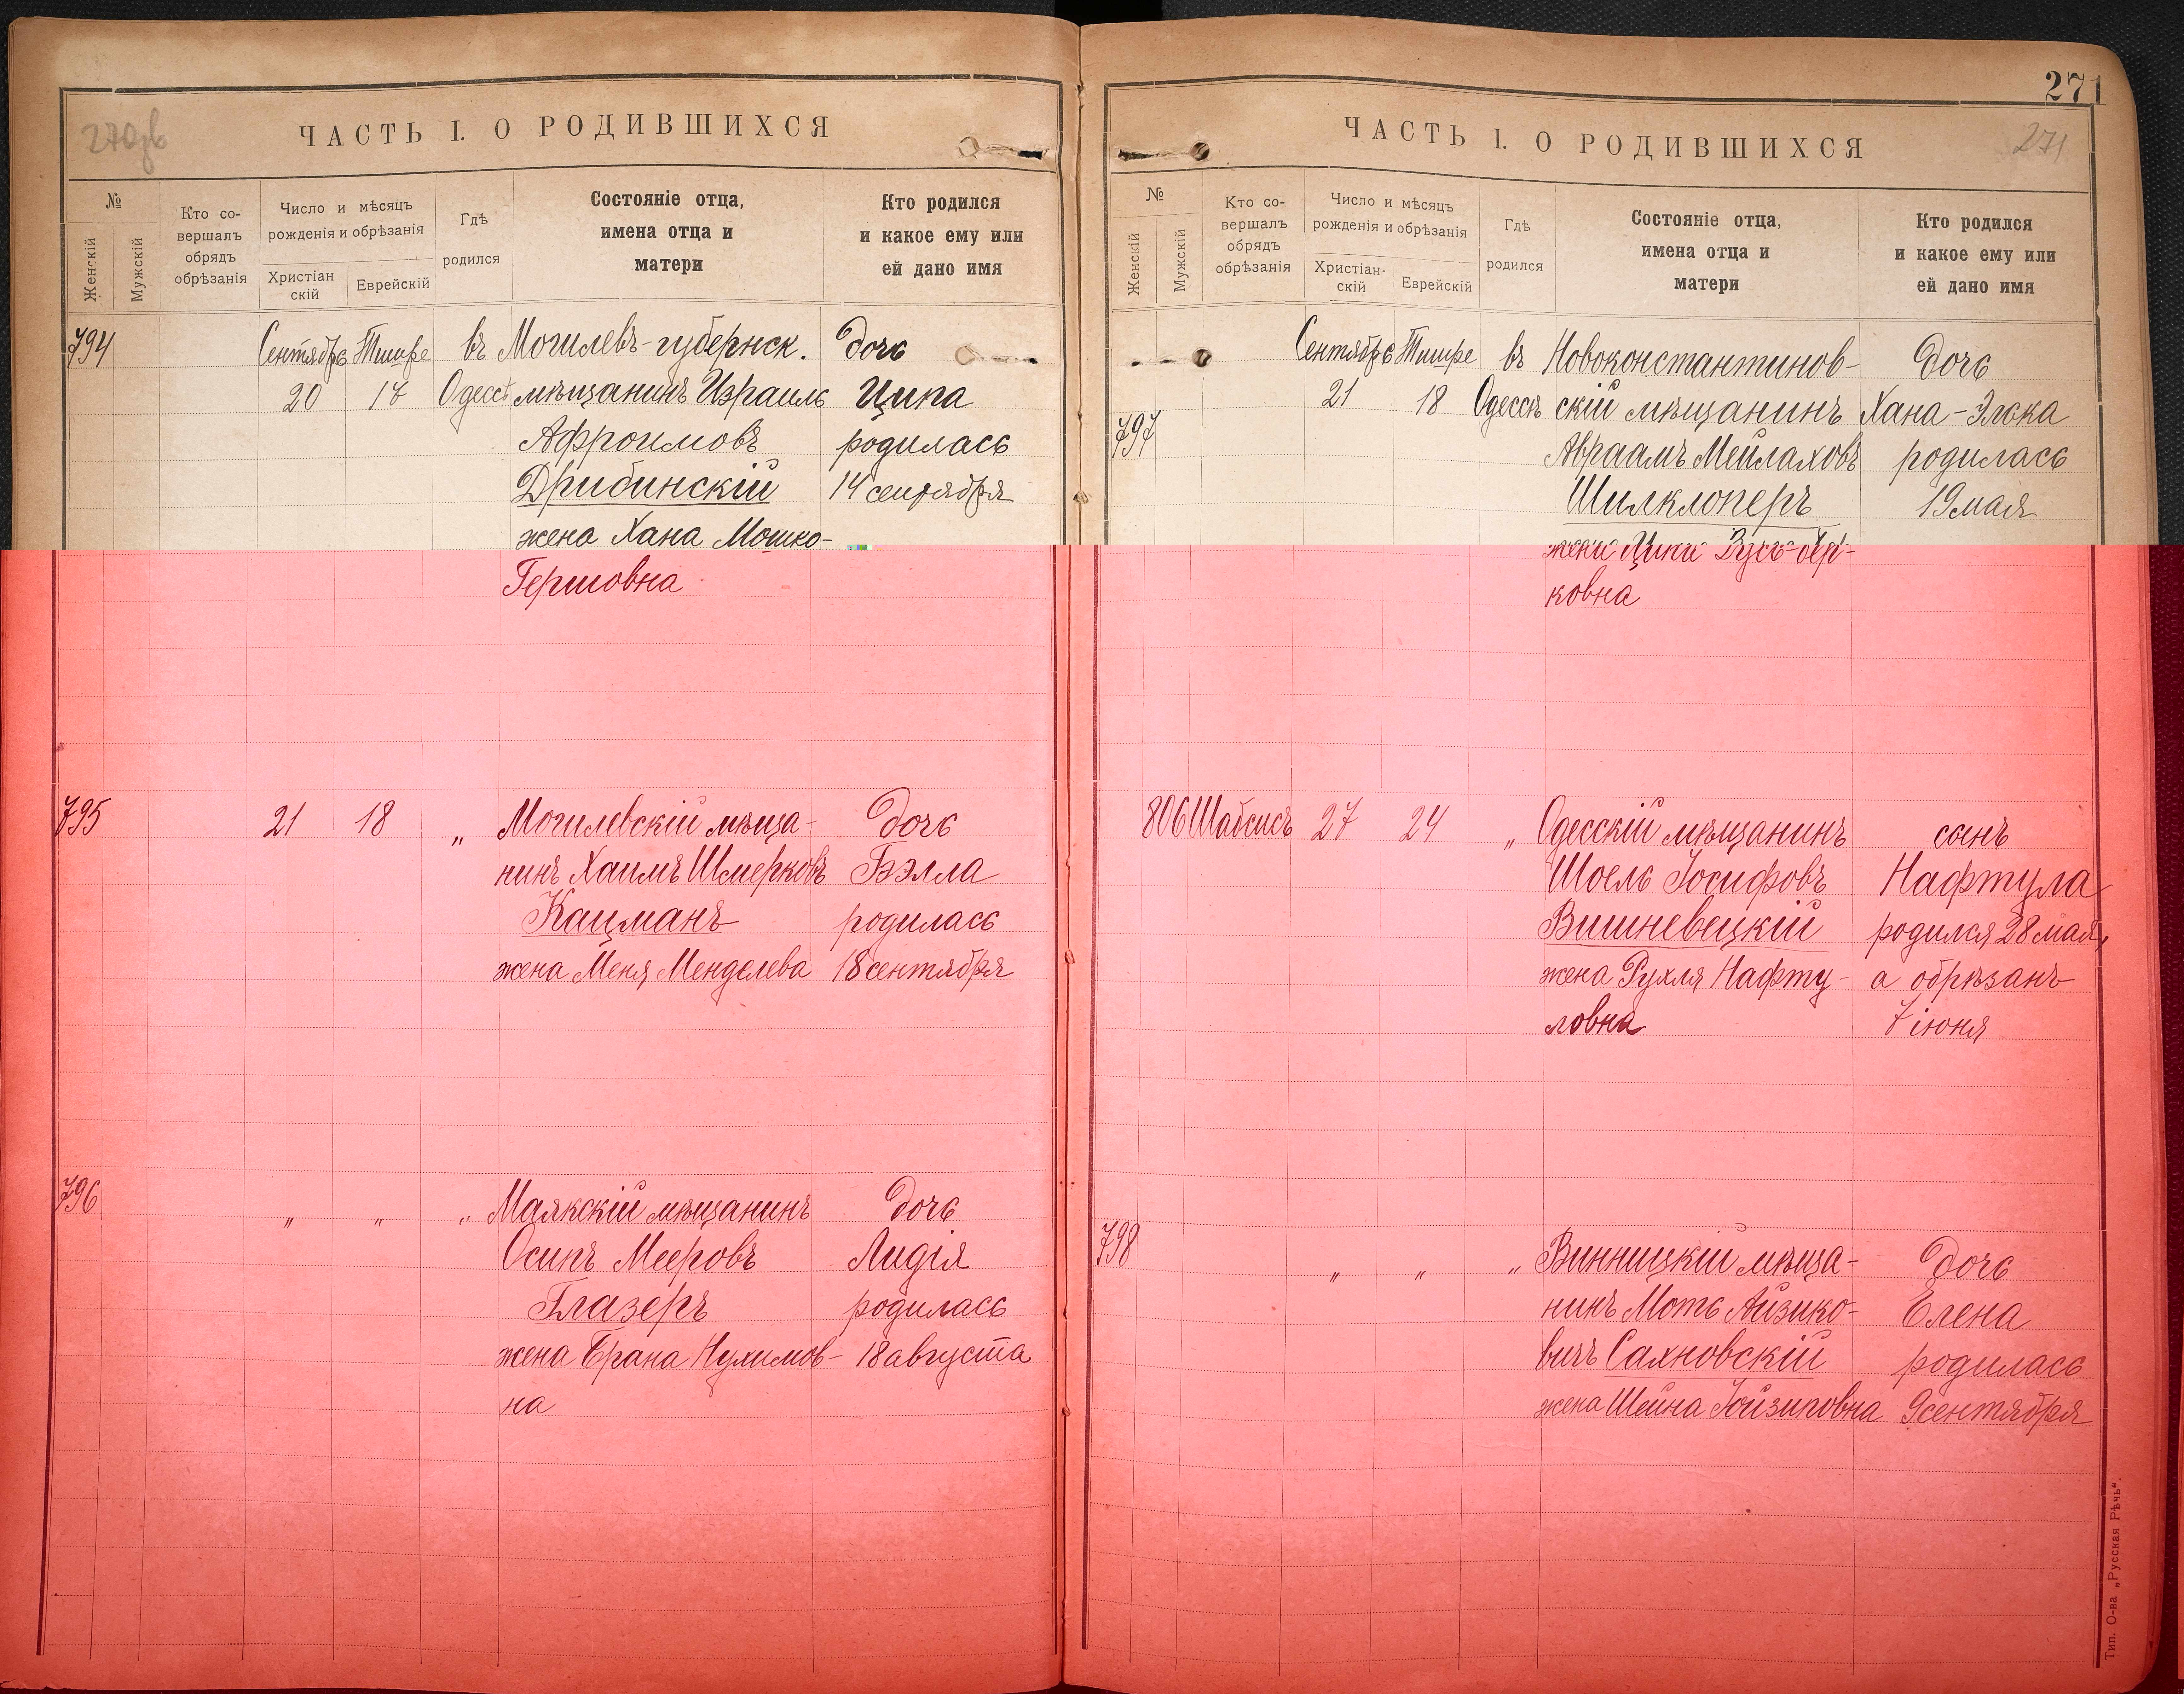 270об
ЧАСТЬ I. О РОДИВШИХСЯ
№
Женскій
Мужскій
Кто со-
вершалъ
обрядъ
обрѣзанія
Число и мѣсяцъ
рожденія и обрѣзанія
Христіан
скій
Еврейскій
Гдѣ
родился
Состояніе отца,
имена отца и
матери
Кто родился
и какое ему или
ей дано имя
794 Сентябрь Тишре въ Могилевъ-губернск. дочь
20 17 Одессѣ мѣщанинъ Израиль Ципа
Афроимовъ родилась
Дрибинскій 14 сентября
жена Хана Мошко-
Гершовна
795 21 18 „ Могилевскій мѣща- дочь
нинъ Хаимъ Шмерковъ Бэлла
Кацманъ родилась
жена Меня Менделева 18 сентября
796 „ „ „ Маякскій мѣщанинъ дочь
Осипъ Мееровъ Лидія
Глазеръ родилась
жена Брана Нухимов- 18 августа
на
271
ЧАСТЬ I. О РОДИВШИХСЯ
271
№
Женскій
Мужскій
Кто со-
вершалъ
обрядъ
обрѣзанія
Число и мѣсяцъ
рожденія и обрѣзанія
Христіан-
скій
Еврейскій
Гдѣ
родился
Состояніе отца,
имена отца и
матери
Кто родился
и какое ему или
ей дано имя
Сентябрь Тишре въ Новоконстантинов- дочь
21 18 Одессѣ скій мѣщанинъ Хана-Элька
797 Авраамъ Мейлаховъ родилась
Шилклоперъ 19 мая
жена Ципа Зусь-бер-
ковна
806 Шабсисъ 27 24 „ Одесскій мѣщанинъ сынъ
Шоель Іосифовъ Нафтула
Вишневецкій родился 28 мая,
жена Рухля Нафту- а обрѣзанъ
ловна 7 іюня
798 „ „ „ Винницкій мѣща- дочь
нинъ Моть Айзико- Елена
вичъ Сахновскій родилась
жена Шейна 9 сентября
Тип. О-ва „Русская Рѣчь“.